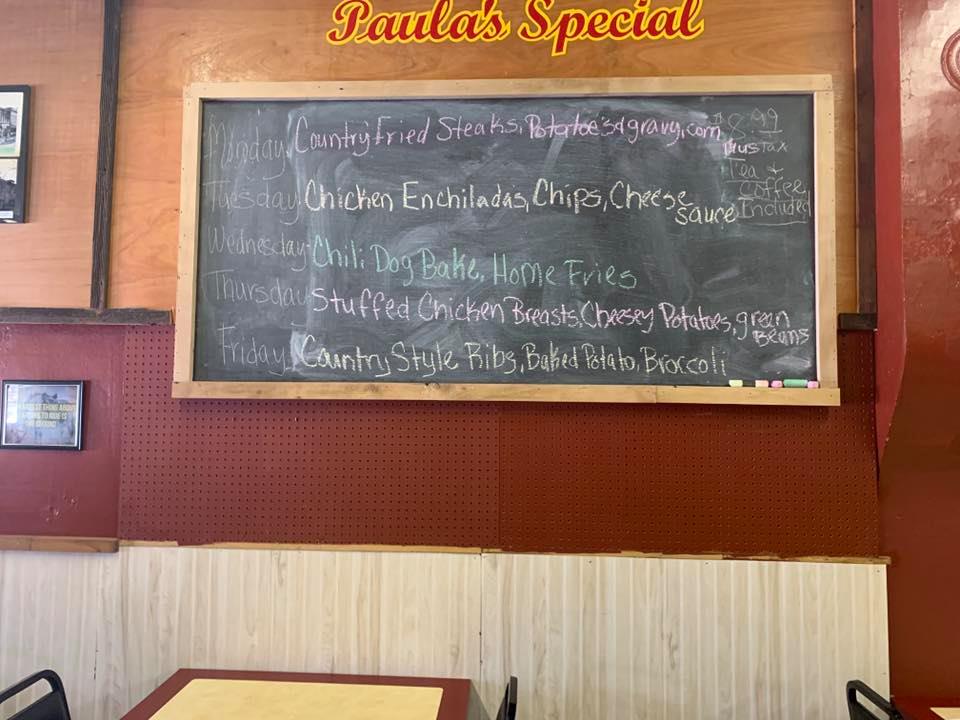 Paula's Special
Monday Country Fried Steaks, Potatoe's & gravy, corn
$8.99
Plus Tax
Tea &
Coffee
Included
Tuesday Chicken Enchiladas, Chips, Cheese
sauce
Wednesday Chili Dog Bake, Home Fries
Thursday Stuffed Chicken Breasts, Cheesey Potatoes, green
Beans
Friday Country Style Ribs, Baked Potato, Broccoli